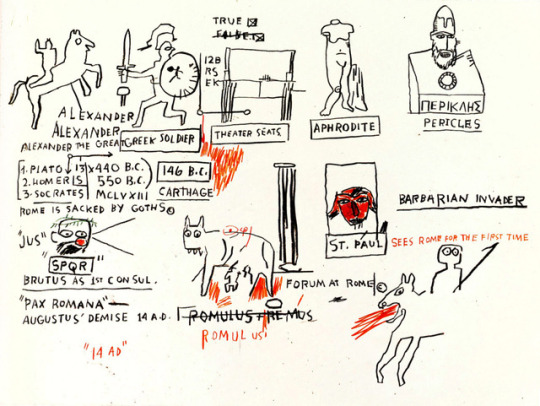 TRUE
FALSE
ALEXANDER
ALEXANDER
ALEXANDER THE GREAT
GREEK SOLDIER
12B
RS
EK
THEATER SEATS
APHRODITE
ΠΕΡΙΚΛΗΣ
PERICLES
1. PLATO
2. HOMER IS
3. SOCRATES
13 x 440 B.C.
550 B.C.
MCLVXIII
146 B.C.
CARTHAGE
ROME IS SACKED BY GOTHS©
"JUS"
SPQR
BRUTUS AS 1ST CONSUL.
"PAX ROMANA"
AUGUSTUS' DEMISE 14 A.D.
"14 AD"
ROMULUS + REMUS
ROMULUS
FORUM AT ROME
ST. PAUL
BARBARIAN INVADER
SEES ROME FOR THE FIRST TIME